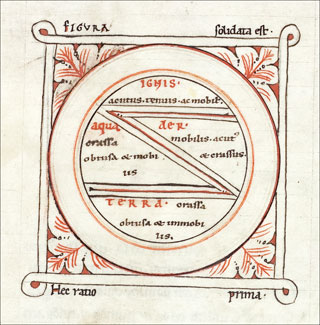 FIGURA solidata est.
IGNIS.
acutus. tenuis. ac mobil'.
aqua
crassa
obtusa & mobi
lis
AER.
mobilis. acut'.
& crassus.
TERRA. crassa
obtusa & immobi
lis.
Hec ratio prima.